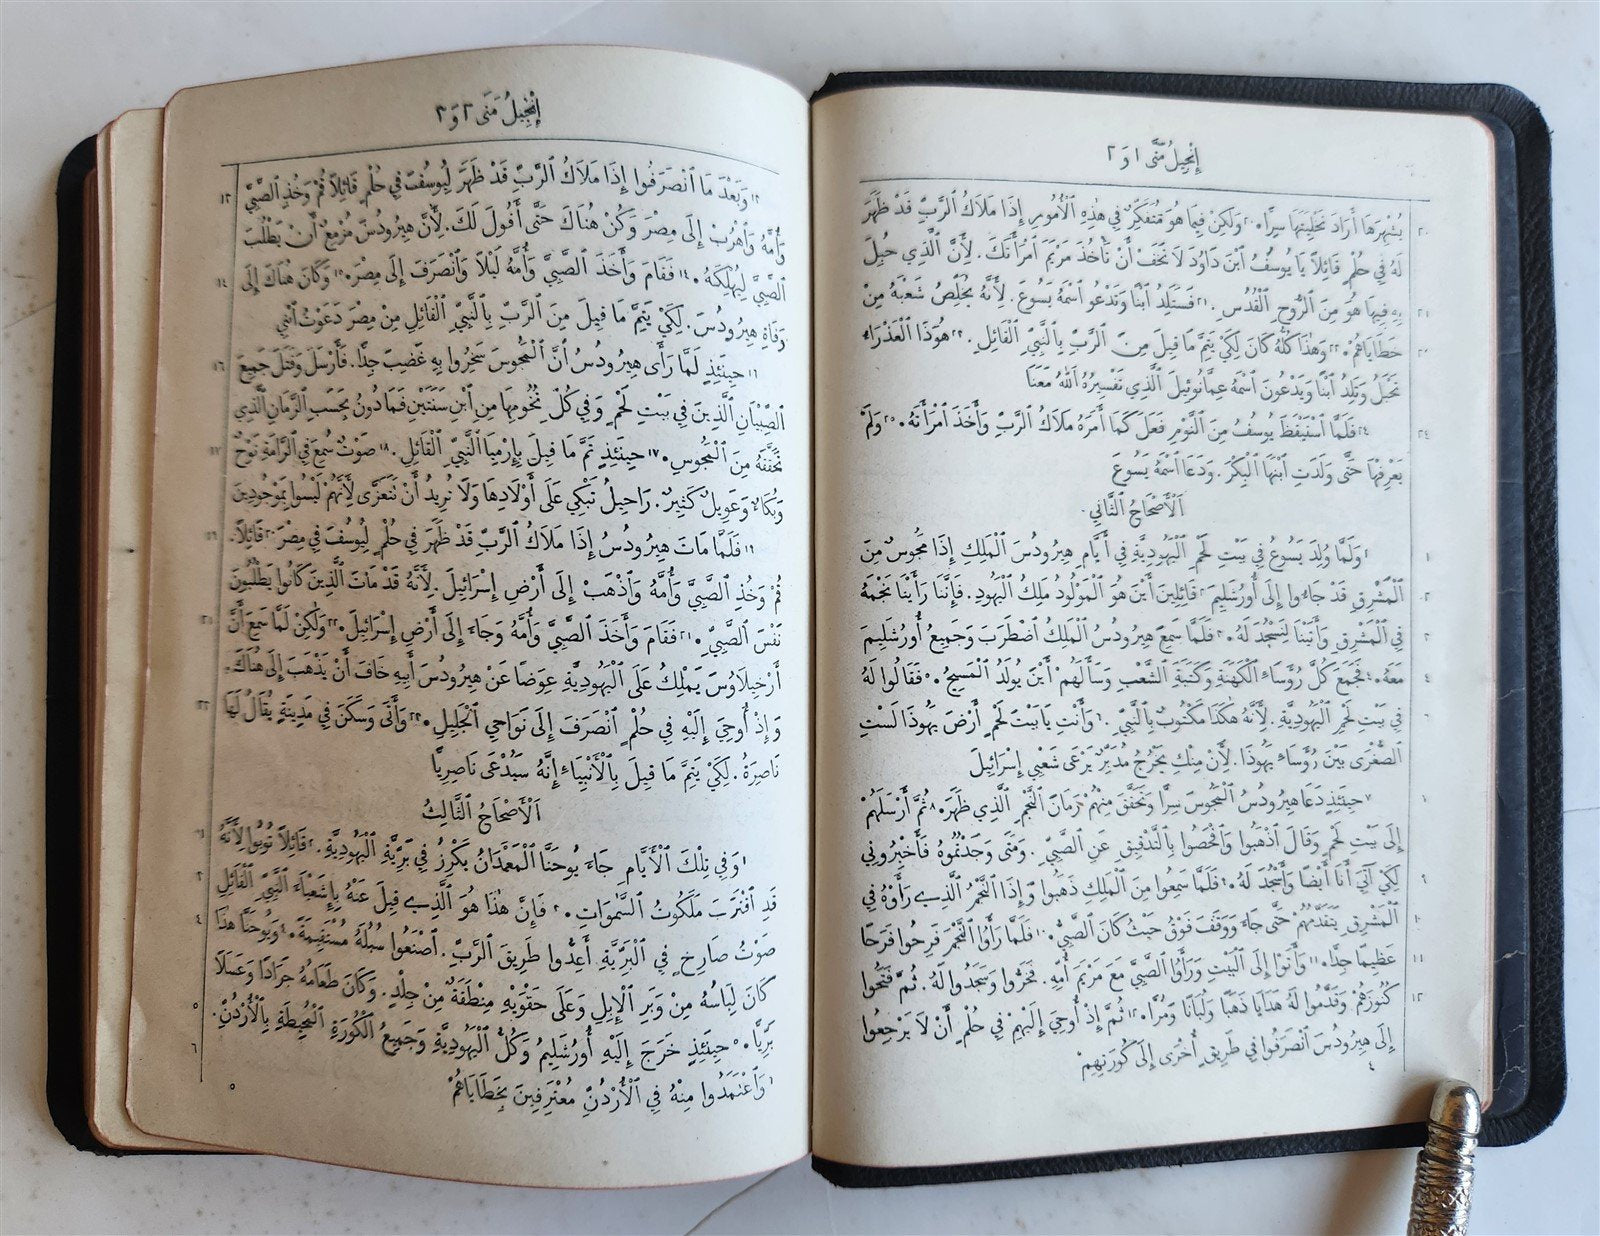 إِنْجِيلُ مَتَّى ١ وَ ٢
يُشْهِرَهَا أَرَادَ تَخْلِيَتَهَا سِرًّا. ٢٠ وَلَكِنْ فِيمَا هُوَ مُتَفَكِّرٌ فِي هٰذِهِ ٱلْأُمُورِ إِذَا مَلَاكُ ٱلرَّبِّ قَدْ ظَهَرَ ٢٠
لَهُ فِي حُلْمٍ قَائِلًا يَا يُوسُفُ ٱبْنَ دَاوُدَ لَا تَخَفْ أَنْ تَأْخُذَ مَرْيَمَ ٱمْرَأَتَكَ. لِأَنَّ ٱلَّذِي حُبِلَ
بِهِ فِيهَا هُوَ مِنَ ٱلرُّوحِ ٱلْقُدُسِ. ٢١ فَسَتَلِدُ ٱبْنًا وَتَدْعُو ٱسْمَهُ يَسُوعَ. لِأَنَّهُ يُخَلِّصُ شَعْبَهُ مِنْ ٢١
خَطَايَاهُمْ. ٢٢ وَهٰذَا كُلُّهُ كَانَ لِكَيْ يَتِمَّ مَا قِيلَ مِنَ ٱلرَّبِّ بِٱلنَّبِيِّ ٱلْقَائِلِ. ٢٣ هُوَذَا ٱلْعَذْرَاءُ ٢٢
تَحْبَلُ وَتَلِدُ ٱبْنًا وَيَدْعُونَ ٱسْمَهُ عِمَّانُوئِيلَ ٱلَّذِي تَفْسِيرُهُ ٱللهُ مَعَنَا
٢٤ فَلَمَّا ٱسْتَيْقَظَ يُوسُفُ مِنَ ٱلنَّوْمِ فَعَلَ كَمَا أَمَرَهُ مَلَاكُ ٱلرَّبِّ وَأَخَذَ ٱمْرَأَتَهُ. ٢٥ وَلَمْ ٢٤
يَعْرِفْهَا حَتَّى وَلَدَتِ ٱبْنَهَا ٱلْبِكْرَ. وَدَعَا ٱسْمَهُ يَسُوعَ
اَلْأَصْحَاحُ ٱلثَّانِي.
١ وَلَمَّا وُلِدَ يَسُوعُ فِي بَيْتِ لَحْمِ ٱلْيَهُودِيَّةِ فِي أَيَّامِ هِيرُودُسَ ٱلْمَلِكِ إِذَا مَجُوسٌ مِنَ ١
ٱلْمَشْرِقِ قَدْ جَاءُوا إِلَى أُورُشَلِيمَ ٢ قَائِلِينَ أَيْنَ هُوَ ٱلْمَوْلُودُ مَلِكُ ٱلْيَهُودِ. فَإِنَّنَا رَأَيْنَا نَجْمَهُ ٢
فِي ٱلْمَشْرِقِ وَأَتَيْنَا لِنَسْجُدَ لَهُ. ٣ فَلَمَّا سَمِعَ هِيرُودُسُ ٱلْمَلِكُ ٱضْطَرَبَ وَجَمِيعُ أُورُشَلِيمَ ٣
مَعَهُ. ٤ فَجَمَعَ كُلَّ رُؤَسَاءِ ٱلْكَهَنَةِ وَكَتَبَةِ ٱلشَّعْبِ وَسَأَلَهُمْ أَيْنَ يُولَدُ ٱلْمَسِيحُ. ٥ فَقَالُوا لَهُ ٤
فِي بَيْتِ لَحْمِ ٱلْيَهُودِيَّةِ. لِأَنَّهُ هٰكَذَا مَكْتُوبٌ بِٱلنَّبِيِّ. ٦ وَأَنْتِ يَا بَيْتَ لَحْمٍ أَرْضَ يَهُوذَا لَسْتِ ٦
ٱلصُّغْرَى بَيْنَ رُؤَسَاءِ يَهُوذَا. لِأَنْ مِنْكِ يَخْرُجُ مُدَبِّرٌ يَرْعَى شَعْبِي إِسْرَائِيلَ
٧ حِينَئِذٍ دَعَا هِيرُودُسُ ٱلْمَجُوسَ سِرًّا وَتَحَقَّقَ مِنْهُمْ زَمَانَ ٱلنَّجْمِ ٱلَّذِي ظَهَرَ. ٨ ثُمَّ أَرْسَلَهُمْ ٧
إِلَى بَيْتِ لَحْمٍ وَقَالَ ٱذْهَبُوا وَٱفْحَصُوا بِٱلتَّدْقِيقِ عَنِ ٱلصَّبِيِّ. وَمَتَى وَجَدْتُمُوهُ فَأَخْبِرُونِي
لِكَيْ آتِيَ أَنَا أَيْضًا وَأَسْجُدَ لَهُ. ٩ فَلَمَّا سَمِعُوا مِنَ ٱلْمَلِكِ ذَهَبُوا وَإِذَا ٱلنَّجْمُ ٱلَّذِي رَأَوْهُ فِي ٩
ٱلْمَشْرِقِ يَتَقَدَّمُهُمْ حَتَّى جَاءَ وَوَقَفَ فَوْقُ حَيْثُ كَانَ ٱلصَّبِيُّ. ١٠ فَلَمَّا رَأَوُا ٱلنَّجْمَ فَرِحُوا فَرَحًا ١٠
عَظِيمًا جِدًّا. ١١ وَأَتَوْا إِلَى ٱلْبَيْتِ وَرَأَوُا ٱلصَّبِيَّ مَعَ مَرْيَمَ أُمِّهِ. فَخَرُّوا وَسَجَدُوا لَهُ. ثُمَّ فَتَحُوا ١١
كُنُوزَهُمْ وَقَدَّمُوا لَهُ هَدَايَا ذَهَبًا وَلُبَانًا وَمُرًّا. ١٢ ثُمَّ إِذْ أُوحِيَ إِلَيْهِمْ فِي حُلْمٍ أَنْ لَا يَرْجِعُوا ١٢
إِلَى هِيرُودُسَ ٱنْصَرَفُوا فِي طَرِيقٍ أُخْرَى إِلَى كُورَتِهِمْ
٤
إِنْجِيلُ مَتَّى ٢ وَ ٣
١٣ وَبَعْدَ مَا ٱنْصَرَفُوا إِذَا مَلَاكُ ٱلرَّبِّ قَدْ ظَهَرَ لِيُوسُفَ فِي حُلْمٍ قَائِلًا قُمْ وَخُذِ ٱلصَّبِيَّ ١٣
وَأُمَّهُ وَٱهْرُبْ إِلَى مِصْرَ وَكُنْ هُنَاكَ حَتَّى أَقُولَ لَكَ. لِأَنَّ هِيرُودُسَ مُزْمِعٌ أَنْ يَطْلُبَ
ٱلصَّبِيَّ لِيُهْلِكَهُ. ١٤ فَقَامَ وَأَخَذَ ٱلصَّبِيَّ وَأُمَّهُ لَيْلًا وَٱنْصَرَفَ إِلَى مِصْرَ. ١٥ وَكَانَ هُنَاكَ إِلَى ١٤
وَفَاةِ هِيرُودُسَ. لِكَيْ يَتِمَّ مَا قِيلَ مِنَ ٱلرَّبِّ بِٱلنَّبِيِّ ٱلْقَائِلِ مِنْ مِصْرَ دَعَوْتُ ٱبْنِي
١٦ حِينَئِذٍ لَمَّا رَأَى هِيرُودُسُ أَنَّ ٱلْمَجُوسَ سَخِرُوا بِهِ غَضِبَ جِدًّا. فَأَرْسَلَ وَقَتَلَ جَمِيعَ ١٦
ٱلصِّبْيَانِ ٱلَّذِينَ فِي بَيْتِ لَحْمٍ وَفِي كُلِّ تُخُومِهَا مِنِ ٱبْنِ سَنَتَيْنِ فَمَا دُونُ بِحَسَبِ ٱلزَّمَانِ ٱلَّذِي
تَحَقَّقَهُ مِنَ ٱلْمَجُوسِ. ١٧ حِينَئِذٍ تَمَّ مَا قِيلَ بِإِرْمِيَا ٱلنَّبِيِّ ٱلْقَائِلِ. ١٨ صَوْتٌ سُمِعَ فِي ٱلرَّامَةِ نَوْحٌ ١٧
وَبُكَاءٌ وَعَوِيلٌ كَثِيرٌ. رَاحِيلُ تَبْكِي عَلَى أَوْلَادِهَا وَلَا تُرِيدُ أَنْ تَتَعَزَّى لِأَنَّهُمْ لَيْسُوا بِمَوْجُودِينَ
١٩ فَلَمَّا مَاتَ هِيرُودُسُ إِذَا مَلَاكُ ٱلرَّبِّ قَدْ ظَهَرَ فِي حُلْمٍ لِيُوسُفَ فِي مِصْرَ ٢٠ قَائِلًا. ١٩
قُمْ وَخُذِ ٱلصَّبِيَّ وَأُمَّهُ وَٱذْهَبْ إِلَى أَرْضِ إِسْرَائِيلَ. لِأَنَّهُ قَدْ مَاتَ ٱلَّذِينَ كَانُوا يَطْلُبُونَ
نَفْسَ ٱلصَّبِيِّ. ٢١ فَقَامَ وَأَخَذَ ٱلصَّبِيَّ وَأُمَّهُ وَجَاءَ إِلَى أَرْضِ إِسْرَائِيلَ. ٢٢ وَلٰكِنْ لَمَّا سَمِعَ أَنَّ ٢١
أَرْخِيلَاوُسَ يَمْلِكُ عَلَى ٱلْيَهُودِيَّةِ عِوَضًا عَنْ هِيرُودُسَ أَبِيهِ خَافَ أَنْ يَذْهَبَ إِلَى هُنَاكَ.
وَإِذْ أُوحِيَ إِلَيْهِ فِي حُلْمٍ ٱنْصَرَفَ إِلَى نَوَاحِي ٱلْجَلِيلِ. ٢٣ وَأَتَى وَسَكَنَ فِي مَدِينَةٍ يُقَالُ لَهَا ٢٣
نَاصِرَةُ. لِكَيْ يَتِمَّ مَا قِيلَ بِٱلْأَنْبِيَاءِ إِنَّهُ سَيُدْعَى نَاصِرِيًّا
اَلْأَصْحَاحُ ٱلثَّالِثُ
١ وَفِي تِلْكَ ٱلْأَيَّامِ جَاءَ يُوحَنَّا ٱلْمَعْمَدَانُ يَكْرِزُ فِي بَرِّيَّةِ ٱلْيَهُودِيَّةِ. ٢ قَائِلًا تُوبُوا لِأَنَّهُ
قَدِ ٱقْتَرَبَ مَلَكُوتُ ٱلسَّمٰوَاتِ. ٣ فَإِنَّ هٰذَا هُوَ ٱلَّذِي قِيلَ عَنْهُ بِإِشَعْيَاءَ ٱلنَّبِيِّ ٱلْقَائِلِ ٣
صَوْتُ صَارِخٍ فِي ٱلْبَرِّيَّةِ. أَعِدُّوا طَرِيقَ ٱلرَّبِّ. ٱصْنَعُوا سُبُلَهُ مُسْتَقِيمَةً. ٤ وَيُوحَنَّا هٰذَا ٤
كَانَ لِبَاسُهُ مِنْ وَبَرِ ٱلْإِبِلِ وَعَلَى حَقْوَيْهِ مِنْطَقَةٌ مِنْ جِلْدٍ. وَكَانَ طَعَامُهُ جَرَادًا وَعَسَلًا
بَرِّيًّا. ٥ حِينَئِذٍ خَرَجَ إِلَيْهِ أُورُشَلِيمُ وَكُلُّ ٱلْيَهُودِيَّةِ وَجَمِيعُ ٱلْكُورَةِ ٱلْمُحِيطَةِ بِٱلْأُرْدُنِّ. ٥
٦ وَٱعْتَمَدُوا مِنْهُ فِي ٱلْأُرْدُنِّ مُعْتَرِفِينَ بِخَطَايَاهُمْ ٦
٥